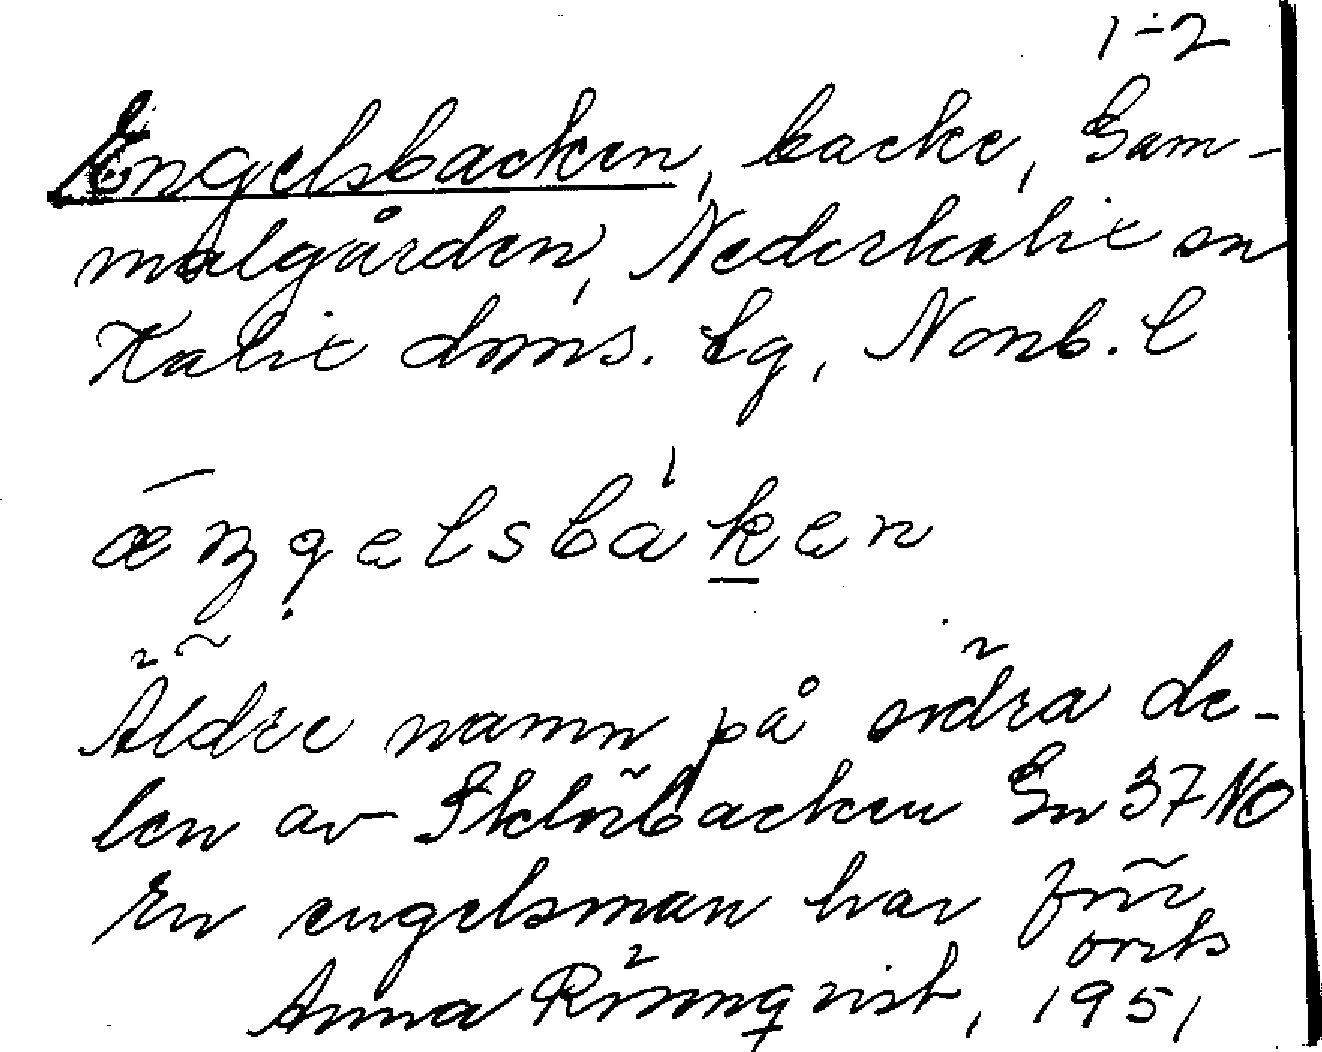 1-2
Engelsbacken, backe, Gam-
melgården, Nederkalix sn
Kalix doms. lg, Norrb. l
æŋgelsbáken
Äldre namn på södra de-
len av Sklörbacken Gn 37 NO
En engelsman har för
orts
Anna Rönnqvist, 1951